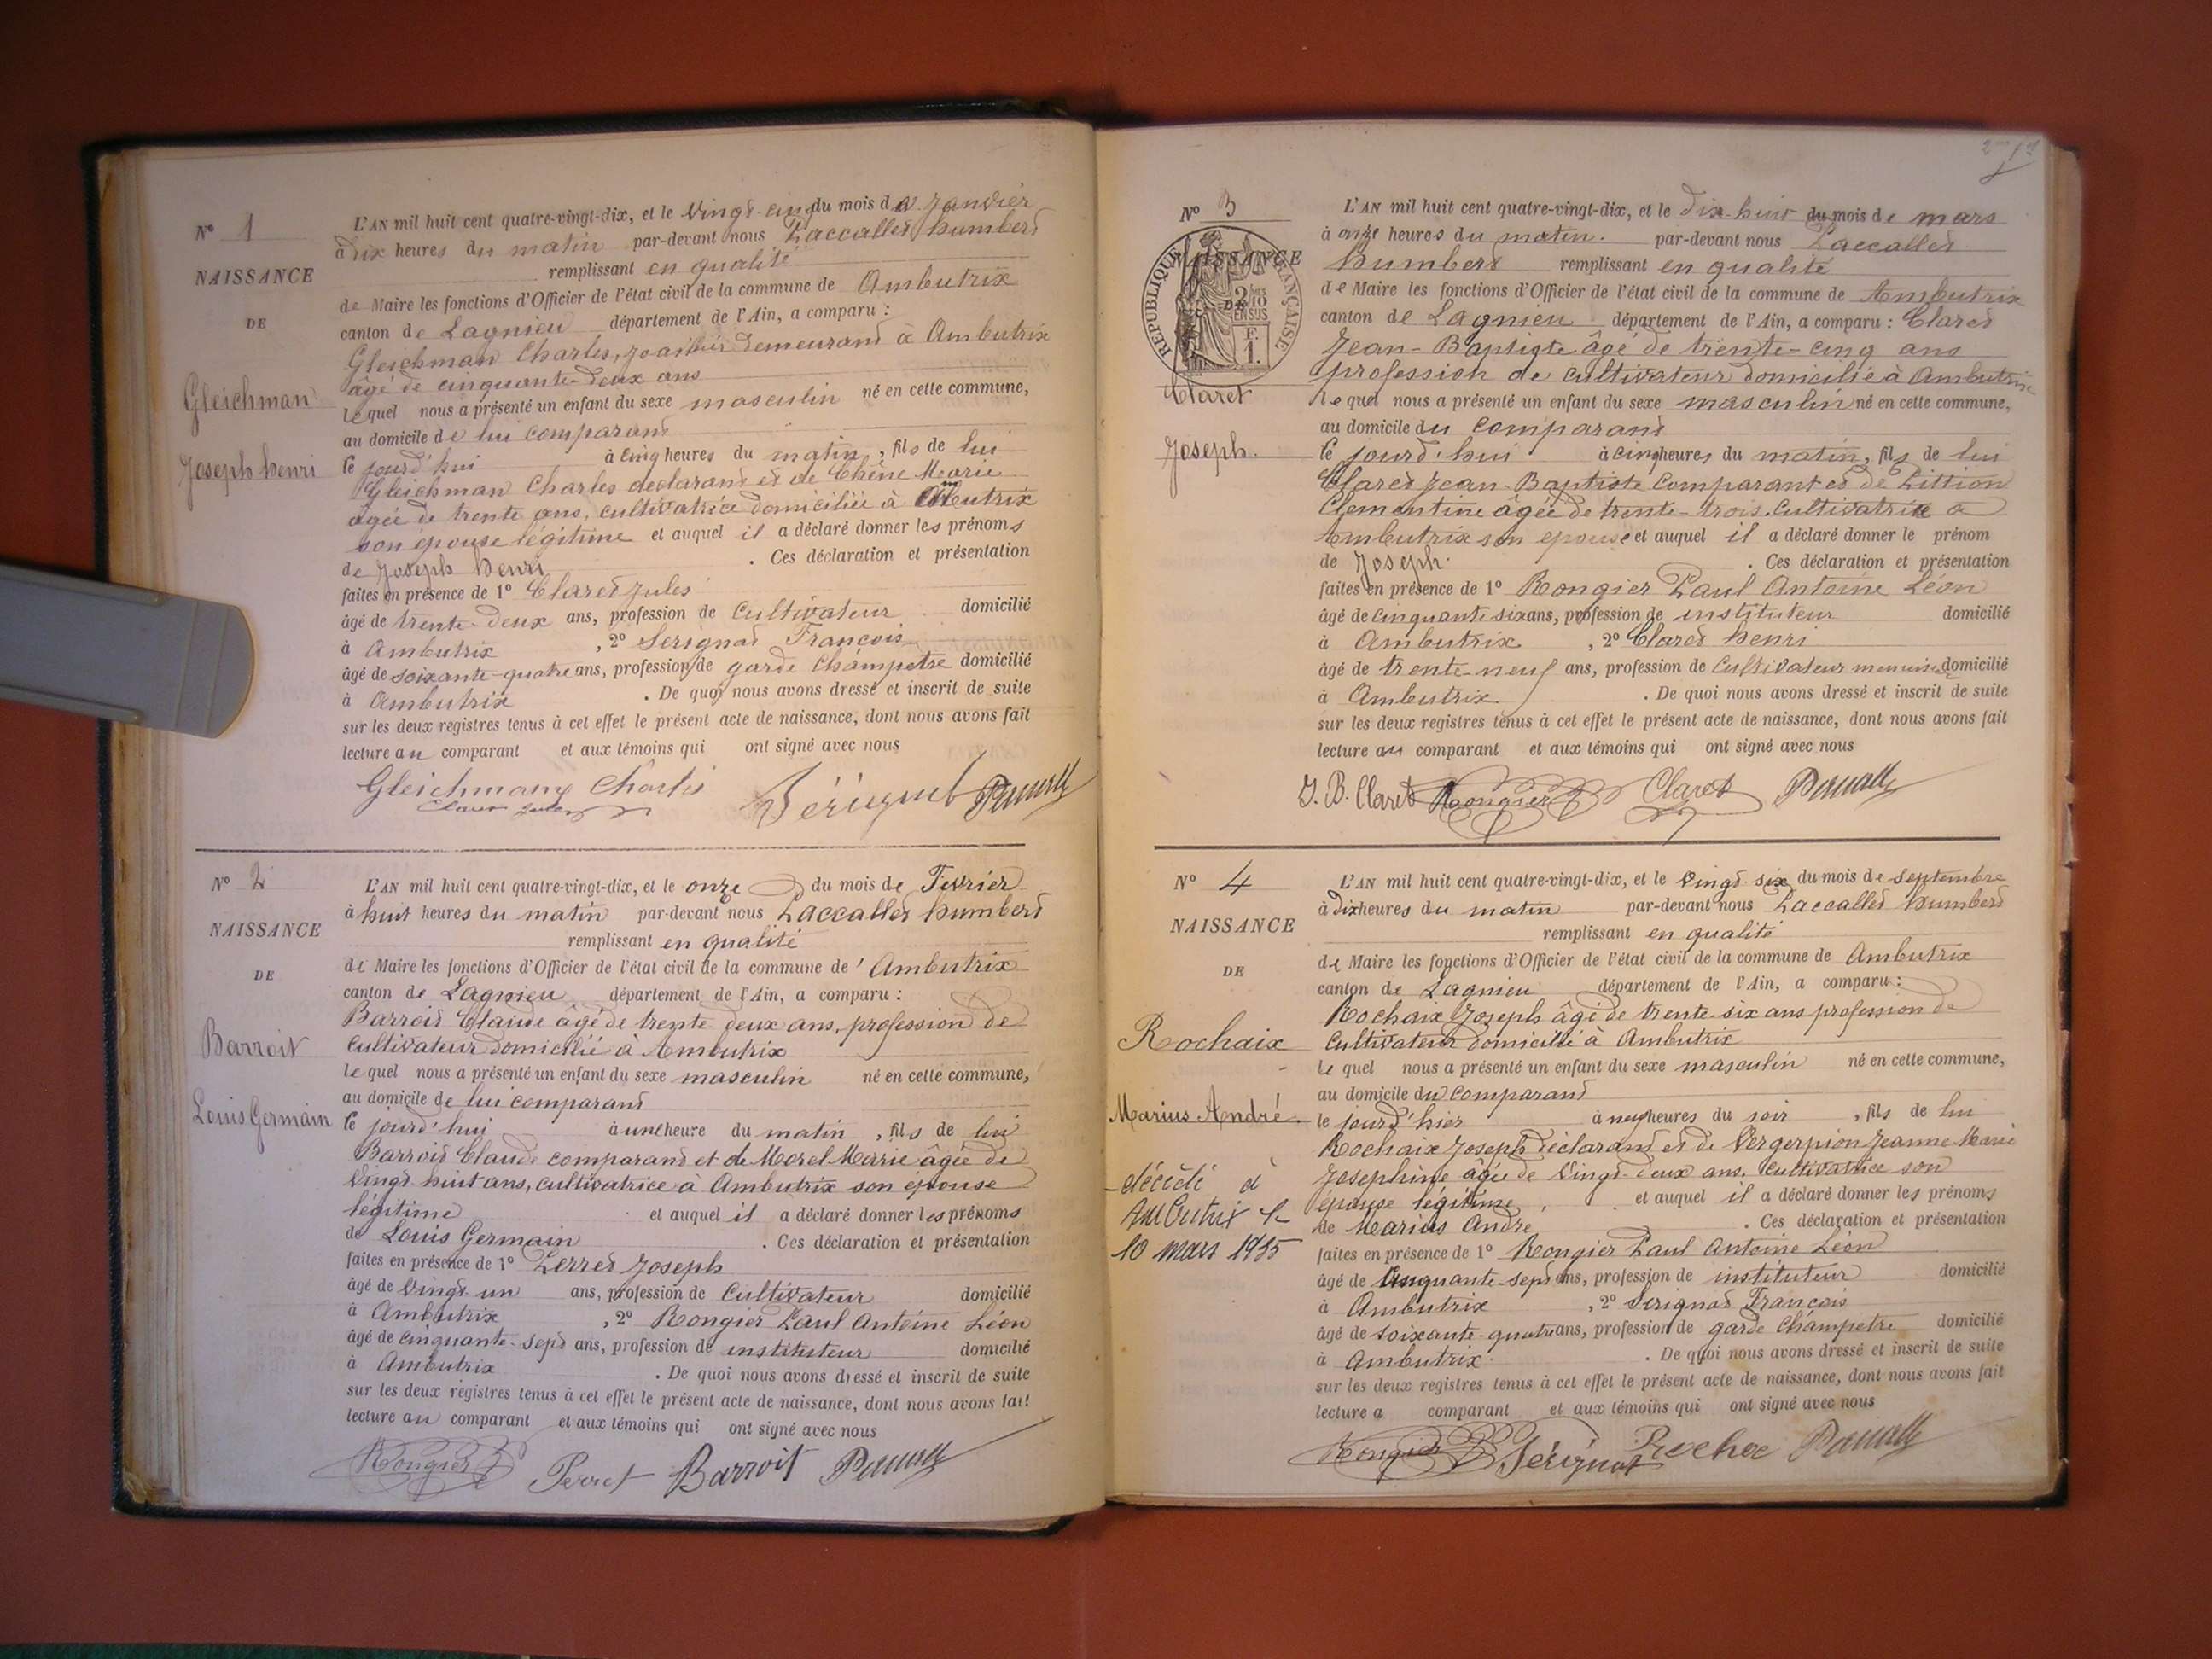 N° 1
NAISSANCE
DE
Gleichman
Joseph henri
L'AN mil huit cent quatre-vingt-dix, et le vingt-cinq du mois de Janvier
à dix heures du matin par-devant nous humbert
remplissant en qualité
de Maire les fonctions d'Officier de l'état civil de la commune de Ambutrix
canton de Lagnieu département de l'Ain, a comparu :
Gleichman Charles, demeurant à Ambutrix
âgé de cinquante-deux ans
lequel nous a présenté un enfant du sexe masculin né en cette commune,
au domicile de lui comparant
le jourd'hui à cinq heures du matin, fils de lui
Gleichman Charles declarant et de Chêne Marie
agée de trente ans, cultivatrice domiciliée à Ambutrix
son épouse légitime et auquel il a déclaré donner les prénoms
de Joseph henri . Ces déclaration et présentation
faites en présence de 1° Claret Jules
âgé de trente-deux ans, profession de Cultivateur domicilié
à Ambutrix , 2° Serignat François
âgé de soixante-quatre ans, profession de garde Champetre domicilié
à Ambutrix . De quoi nous avons dressé et inscrit de suite
sur les deux registres tenus à cet effet le présent acte de naissance, dont nous avons fait
lecture au comparant et aux témoins qui ont signé avec nous
Gleichmann Charles Sérignat
Claret Jules
N° 2
NAISSANCE
DE
Barroit
Louis Germain
L'AN mil huit cent quatre-vingt-dix, et le onze du mois de Fevrier
à huit heures du matin par-devant nous humbert
remplissant en qualité
de Maire les fonctions d'Officier de l'état civil de la commune de Ambutrix
canton de Lagnieu département de l'Ain, a comparu :
Barroit Claude âgé de trente deux ans, profession de
cultivateur domicilié à Ambutrix
lequel nous a présenté un enfant du sexe masculin né en cette commune,
au domicile de lui comparant
le jourd'hui à une heure du matin, fils de lui
Barroit Claude comparant et de Morel Marie âgée de
vingt huit ans, cultivatrice à Ambutrix son épouse
légitime et auquel il a déclaré donner les prénoms
de Louis Germain . Ces déclaration et présentation
faites en présence de 1° Perret Joseph
âgé de vingt un ans, profession de Cultivateur domicilié
à Ambutrix , 2° Rongier Paul Antoine Léon
âgé de cinquante-sept ans, profession de instituteur domicilié
à Ambutrix . De quoi nous avons dressé et inscrit de suite
sur les deux registres tenus à cet effet le présent acte de naissance, dont nous avons fait
lecture au comparant et aux témoins qui ont signé avec nous
Rongier Perret Barroit
N° 3
NAISSANCE
DE
RÉPUBLIQUE FRANÇAISE
2/10 EN SUS
F. 1.
Claret
Joseph.
L'AN mil huit cent quatre-vingt-dix, et le dix-huit du mois de mars
à onze heures du matin. par-devant nous
humbert remplissant en qualité
de Maire les fonctions d'Officier de l'état civil de la commune de Ambutrix
canton de Lagnieu département de l'Ain, a comparu : Claret
Jean-Baptiste âgé de trente-cinq ans
profession de cultivateur domicilié à Ambutrix
lequel nous a présenté un enfant du sexe masculin né en cette commune,
au domicile du comparant
le jourd'hui à cinq heures du matin, fils de lui
Claret Jean-Baptiste comparant et de
Clementine âgée de trente-trois. Cultivatrice a
Ambutrix son épouse et auquel il a déclaré donner le prénom
de Joseph. . Ces déclaration et présentation
faites en présence de 1° Rongier Paul Antoine Léon
âgé de cinquante six ans, profession de instituteur domicilié
à Ambutrix , 2° Claret henri
âgé de trente-neuf ans, profession de Cultivateur menuisier domicilié
à Ambutrix . De quoi nous avons dressé et inscrit de suite
sur les deux registres tenus à cet effet le présent acte de naissance, dont nous avons fait
lecture au comparant et aux témoins qui ont signé avec nous
J. B. Claret Rongier Claret
N° 4
NAISSANCE
DE
Rochaix
Marius André.
décédé à
Ambutrix le
10 mars 1955
L'AN mil huit cent quatre-vingt-dix, et le vingt six du mois de septembre
à dix heures du matin par-devant nous humbert
remplissant en qualité
de Maire les fonctions d'Officier de l'état civil de la commune de Ambutrix
canton de Lagnieu département de l'Ain, a comparu :
Rochaix Joseph âgé de trente six ans profession de
Cultivateur domicilié à Ambutrix
lequel nous a présenté un enfant du sexe masculin né en cette commune,
au domicile du comparant
le jourd'hier à neuf heures du soir, fils de lui
Rochaix Joseph déclarant et de Vergerpion Jeanne Marie
Josephine âgée de vingt-deux ans. Cultivatrice son
épouse légitime et auquel il a déclaré donner les prénoms
de Marius André . Ces déclaration et présentation
faites en présence de 1° Rongier Paul Antoine Léon
âgé de cinquante-sept ans, profession de instituteur domicilié
à Ambutrix , 2° Serignat François
âgé de soixante-quatre ans, profession de garde Champetre domicilié
à Ambutrix. . De quoi nous avons dressé et inscrit de suite
sur les deux registres tenus à cet effet le présent acte de naissance, dont nous avons fait
lecture a comparant et aux témoins qui ont signé avec nous
Rongier Sérignat